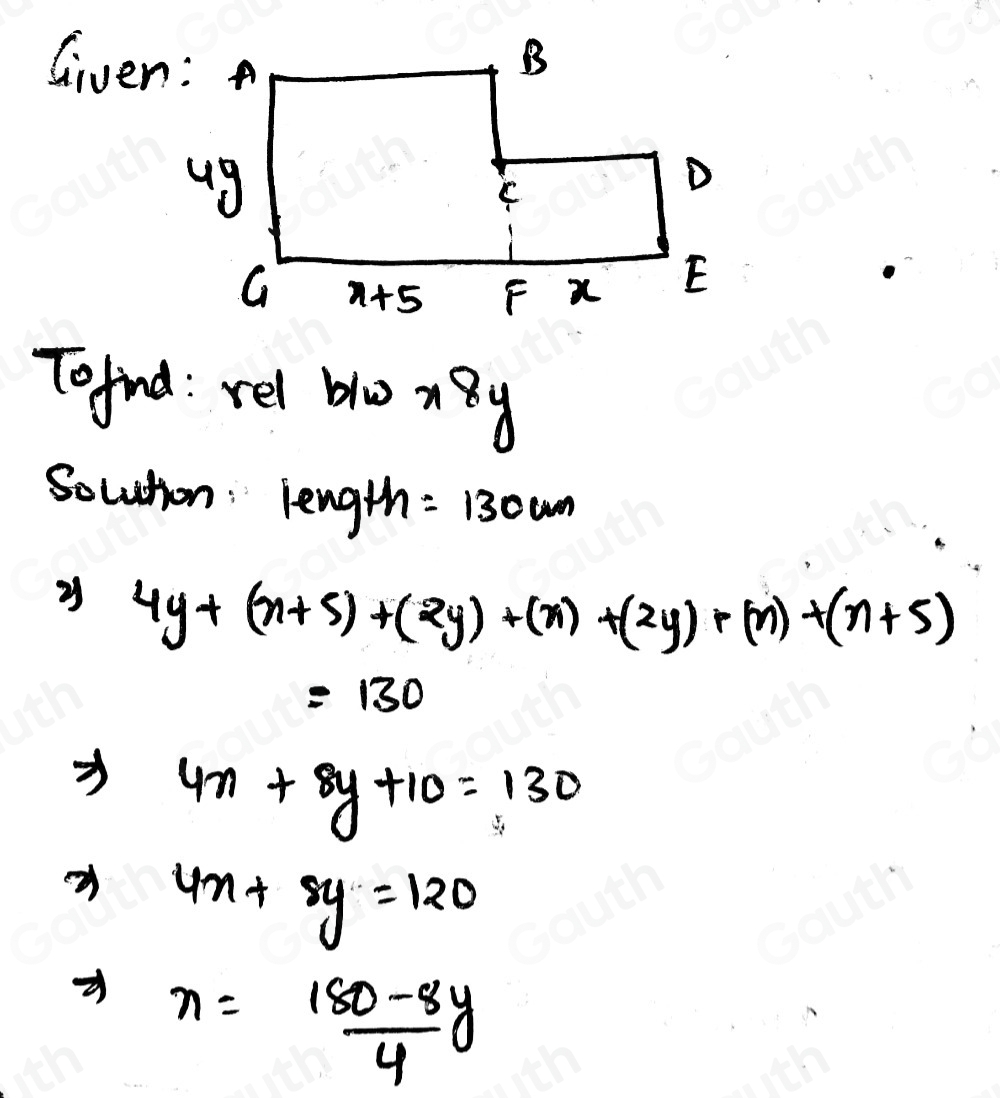 Given: A B
4y C D
G x+5 F x E
To find: rel b/w x & y
Solution: length = 130 cm
⇒ 4y + (x+5) + (2y) + (x) + (2y) + (x) + (x+5)
= 130
⇒ 4x + 8y + 10 = 130
⇒ 4x + 8y = 120
⇒ x = 180 - 8y
4
Gauth